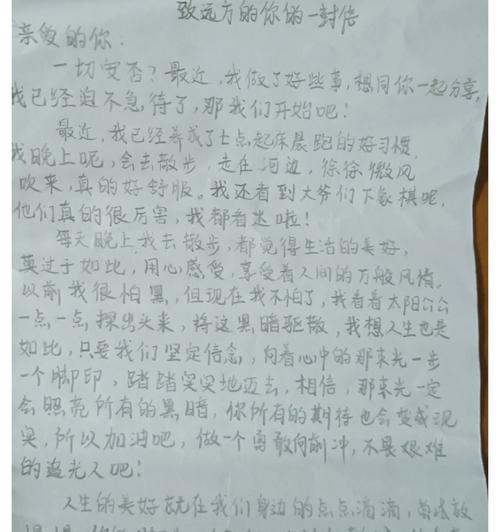 致远方的你的一封信
亲爱的你:
一切安否?最近,我做了好些事,想同你一起分享,
我已经迫不急待了,那我们开始吧!
最近,我已经养成了七点起床晨跑的好习惯,
我晚上呢,会去散步,走在河边,徐徐微风
吹来,真的好舒服。我还看到大爷们下象棋呢,
他们真的很厉害,我都看迷啦!
每天晚上,我去散步,都觉得生活的美好,
莫过于如此,用心感受,享受着人间的万般风情。
以前我很怕黑,但现在我不怕了,我看着太阳公公
一点一点探出头来,将这黑暗驱散,我想人生也是
如此,只要我们坚定信念,向着心中的那束光一步
一个脚印,踏踏实实地迈去,相信,那束光一定
会照亮所有的黑暗,你所有的期待也会变成现
实,所以加油吧,做一个勇敢向前冲,不畏艰难
的追光人吧!
人生的美好就在我们身边的点点滴滴,